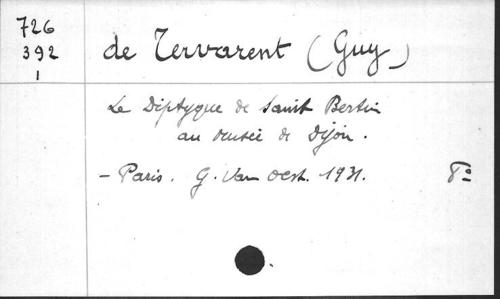 726
392
1
de Tervarent (Guy)
Le Diptyque de Saint Bertin
au Musée de Dijon.
- Paris. G. Van Oest. 1931.
8º